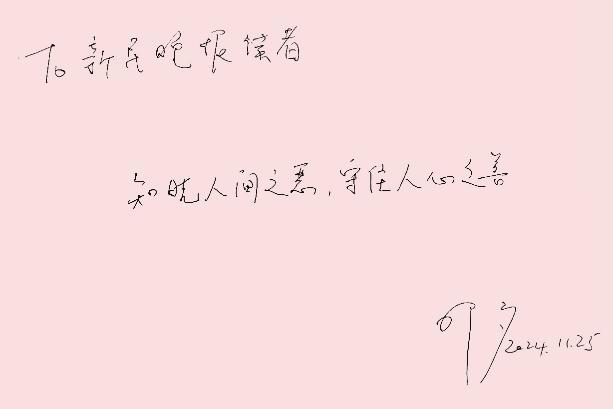 To 新民晚报读者
知晓人间之恶，守住人心之善
2024.11.25